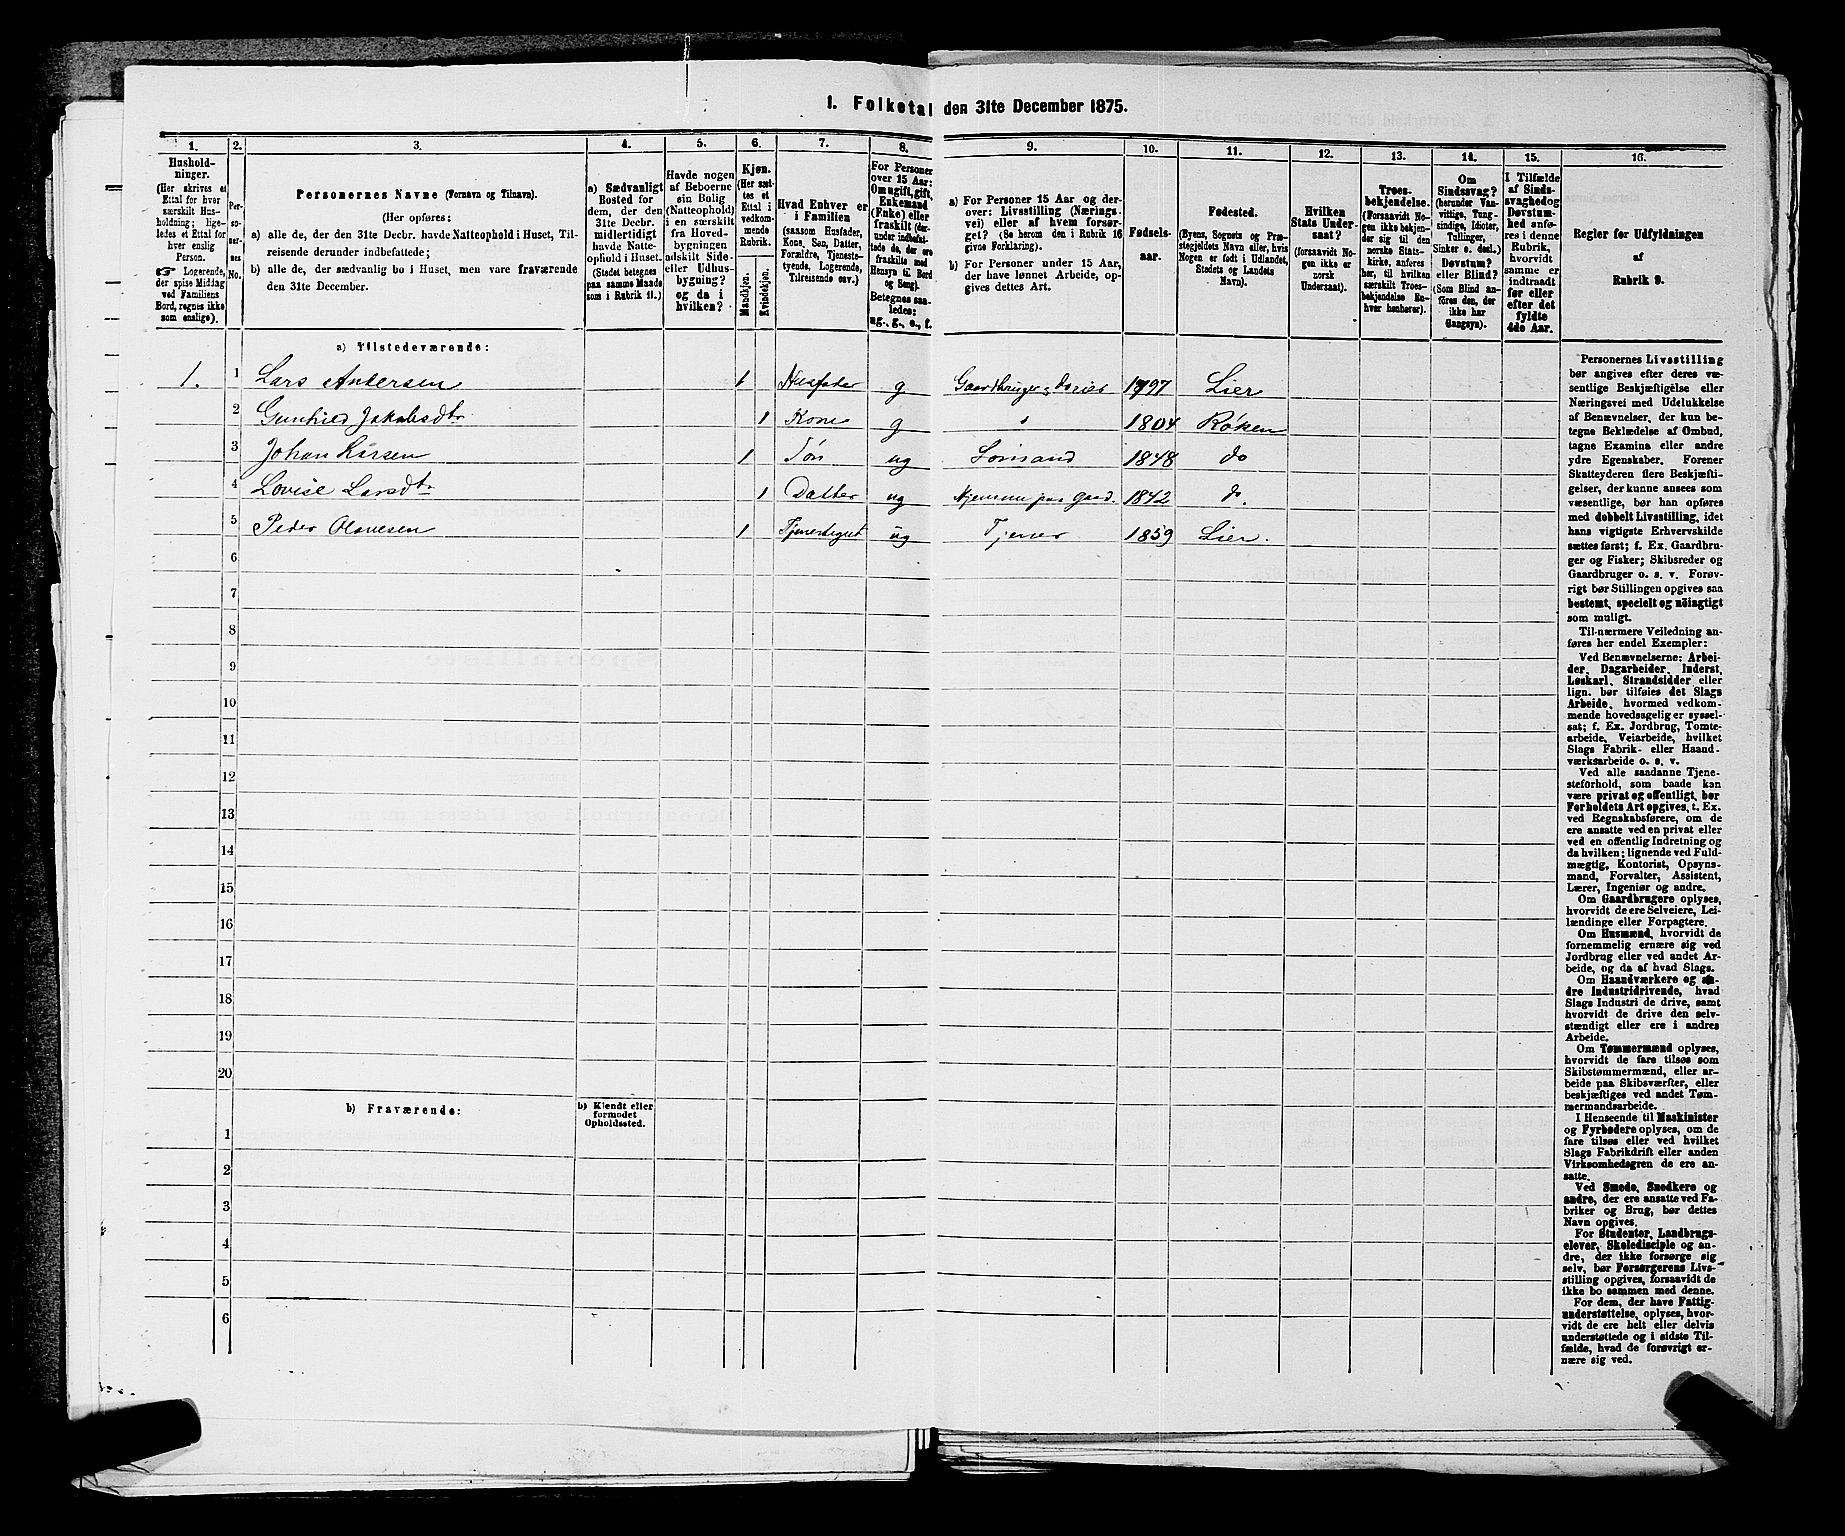 1. Folketal den 31te December 1875.
1.
2.
3.
4.
5.
6.
7.
8.
9.
10.
11.
12.
13.
14.
15.
16.
Hushold-
ninger.
(Her skrives et
Ettal for hver
særskilt Hus-
holdning; lige-
ledes et Ettal for
hver enslig
Person.
☞ Logerende,
der spise Middag
ved Familiens
Bord, regnes ikke
som enslige).
Per-
so-
ner-
nes
No.
Personernes Navne (Fornavn og Tilnavn).
(Her opføres:
a) alle de, der den 31te Decbr. havde Natteophold i Huset, Til-
reisende derunder indbefattede;
b) alle de, der sædvanlig bo i Huset, men vare fraværende
den 31te December.
a) Sædvanligt
Bosted for
dem, der den
31te Decbr.
midlertidigt
havde Natte-
ophold i Huset.
(Stedet betegnes
paa samme Maade
som i Rubrik 11.)
Havde nogen
af Beboerne
sin Bolig
(Natteophold)
i en særskilt
fra Hoved-
bygningen
adskilt Side-
eller Udhus-
bygning?
og da i
hvilken?
Kjøn.
(Her sæt-
tes et
Ettal i
vedkom-
mende
Rubrik.
Mandkjøn.
Kvindekjøn.
Hvad Enhver er
i Familien
(saasom Husfader,
Kone, Søn, Datter,
Forældre, Tjeneste-
tyende, Logerende,
Tilreisende osv.)
For Personer
over 15 Aar:
Om ugift, gift,
Enkemand
(Enke) eller
fraskilt (der-
under indbefat-
tede de, der ere
fraskilte med
Hensyn til Bord
og Seng).
Betegnes saa-
ledes:
ug., g., e., f.
a) For Personer 15 Aar og der-
over: Livsstilling (Nærings-
vei) eller af hvem forsør-
get? (Se herom den i Rubrik 16
givne Forklaring).
b) For Personer under 15 Aar,
der have lønnet Arbeide, op-
gives dettes Art.
Fødsels-
aar.
Fødested.
(Byens, Sognets og Præ-
stegjeldets Navn eller, hvis
Nogen er født i Udlandet,
Stedets og Landets
Navn).
Hvilken
Stats Under-
saat?
(forsaavidt No-
gen ikke er
norsk
Undersaat).
Troes-
bekjendelse.
(Forsaavidt No-
gen ikke bekjen-
der sig til den
norske Stats-
kirke, anføres
her, til hvilken
særskilt Troes-
bekjendelse En-
hver henhører).
Om
Sindssvag?
(herunder Van-
vittige, Tung-
sindige, Idioter,
Tullinger,
Sinker o. desl.)
Døvstum?
eller Blind?
(Som Blind an-
føres den, der
ikke har
Gangsyn).
I Tilfælde
af Sinds-
svaghed og
Døvstum-
hed anfø-
res i denne
Rubrik,
hvorvidt
samme er
indtraadt
før eller
efter det
fyldte
4de Aar.
Regler for Udfyldningen
af
Rubrik 9.
a) Tilstedeværende:
1. 1 Lars Andersen 1 Husfader g Gaardbruger Selveier 1797 Lier
2 Gunhild Jakobsdtr 1 Kone g 1804 Røken
3 Johan Larsen 1 Søn ug 1848 do
4 Lovise Larsdtr 1 Datter ug Hjemme paa Gaard. 1842 do.
5 Peder Olavesen 1 ug Tjener 1859 Lier.
6
7
8
9
10
11
12
13
14
15
16
17
18
19
20
b) Fraværende:
b) Kjendt eller
formodet
Opholdssted.
1
2
3
4
5
6
Personernes Livsstilling
bør angives efter deres væ-
sentlige Beskjæftigelse eller
Næringsvei med Udelukkelse
af Benævnelser, der kun be-
tegne Beklædelse af Ombud,
tagne Examina eller andre
ydre Egenskaber. Forener
Skatteyderen flere Beskjæfti-
gelser, der kunne ansees som
væsentlige, bør han opføres
med dobbelt Livsstilling, idet
hans vigtigste Erhvervskilde
sættes først; f. Ex. Gaardbru-
ger og Fisker; Skibsreder og
Gaardbruger o. s. v. Forøv-
rigt bør Stillingen opgives saa
bestemt, specielt og nöiagtigt
som muligt.
Til nærmere Veiledning an-
føres her endel Exempler:
Ved Benævnelserne: Arbei-
der, Dagarbeider, Inderst,
Løskarl, Strandsidder eller
lign. bør tilføies det Slags
Arbeide, hvormed vedkom-
mende hovedsagelig er syssel-
sat; f. Ex. Jordbrug, Tomte-
arbeide, Veiarbeide, hvilket
Slags Fabrik- eller Haand-
værksarbeide o. s. v.
Ved alle saadanne Tjene-
steforhold, som baade kan
være privat og offentligt, bør
Forholdets Art opgives, t. Ex.
ved Regnskabsførere, om de
ere ansatte ved en privat eller
ved en offentlig Indretning og
da hvilken; lignende ved Fuld-
mægtig, Kontorist, Opsyns-
mand, Forvalter, Assistent,
Lærer, Ingeniør og andre.
Om Gaardbrugere oplyses,
hvorvidt de ere Selveiere, Lei-
lændinge eller Forpagtere.
Om Husmænd, hvorvidt de
fornemmelig ernære sig ved
Jordbrug eller ved andet Ar-
beide, og da af hvad Slags.
Om Haandværkere og an-
dre Industridrivende, hvad
Slags Industri de drive, samt
hvorvidt de drive den selv-
stændigt eller ere i andres
Arbeide.
Om Tømmermænd oplyses,
hvorvidt de fare tilsøs som
Skibstømmermænd, eller ar-
beide paa Skibsværfter, eller
beskjæftiges ved andet Tøm-
mermandsarbeide.
I Henseende til Maskinister
og Fyrbødere oplyses, om de
fare tilsøs eller ved hvilket
Slags Fabrikdrift eller anden
Virksomhedsgren de ere an-
satte.
Ved Smede, Snedkere og
andre, der ere ansatte ved Fa-
briker og Brug, bør dettes
Navn opgives.
For Studenter, Landbrugs-
elever, Skoledisciple og an-
dre, der ikke forsørge sig
selv, bør Forsørgerens Livs-
stilling opgives, forsaavidt de
ikke bo sammen med denne.
For dem, der have Fattig-
understøttelse, oplyses, hvor-
vidt de ere helt eller delvis
understøttede og i sidste Til-
fælde, hvad de forøvrigt er-
nære sig ved.